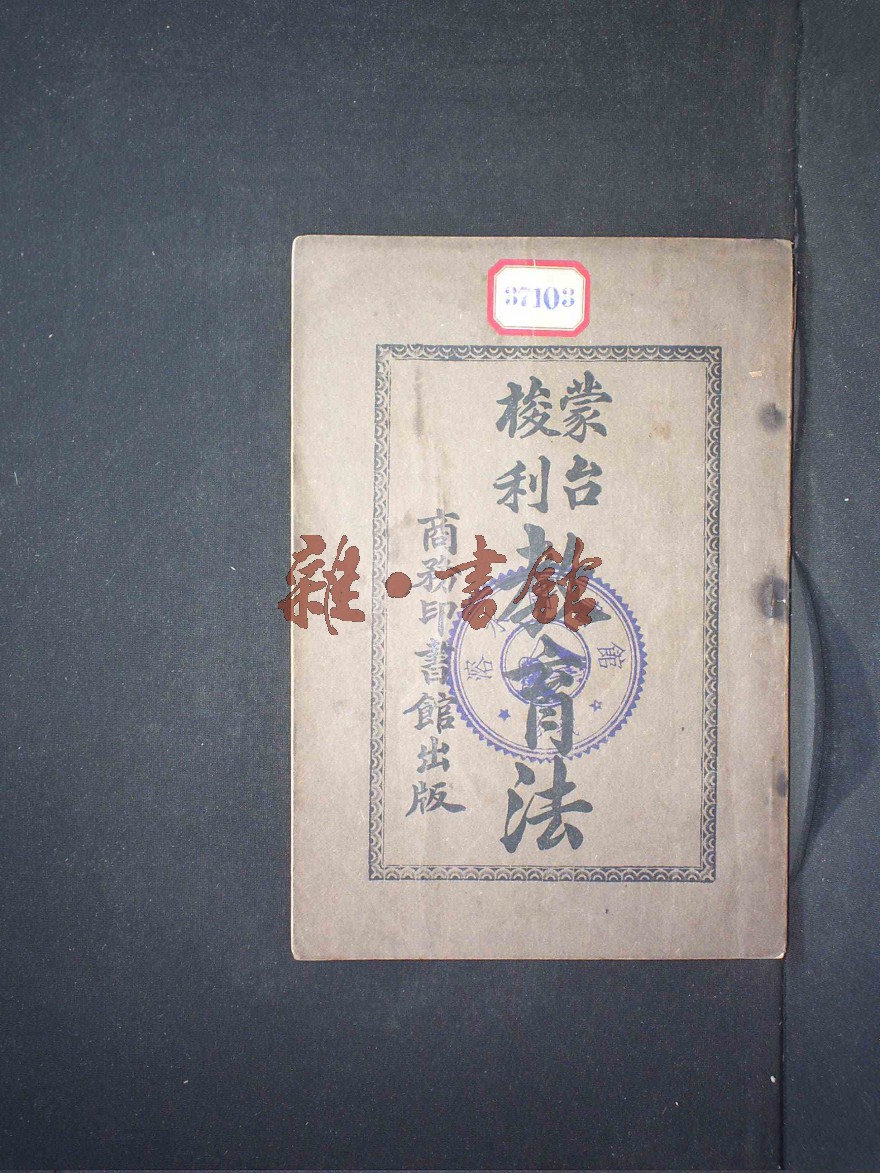 37103
蒙台
梭利
教育法
商務印書館出版
雜·書館
館